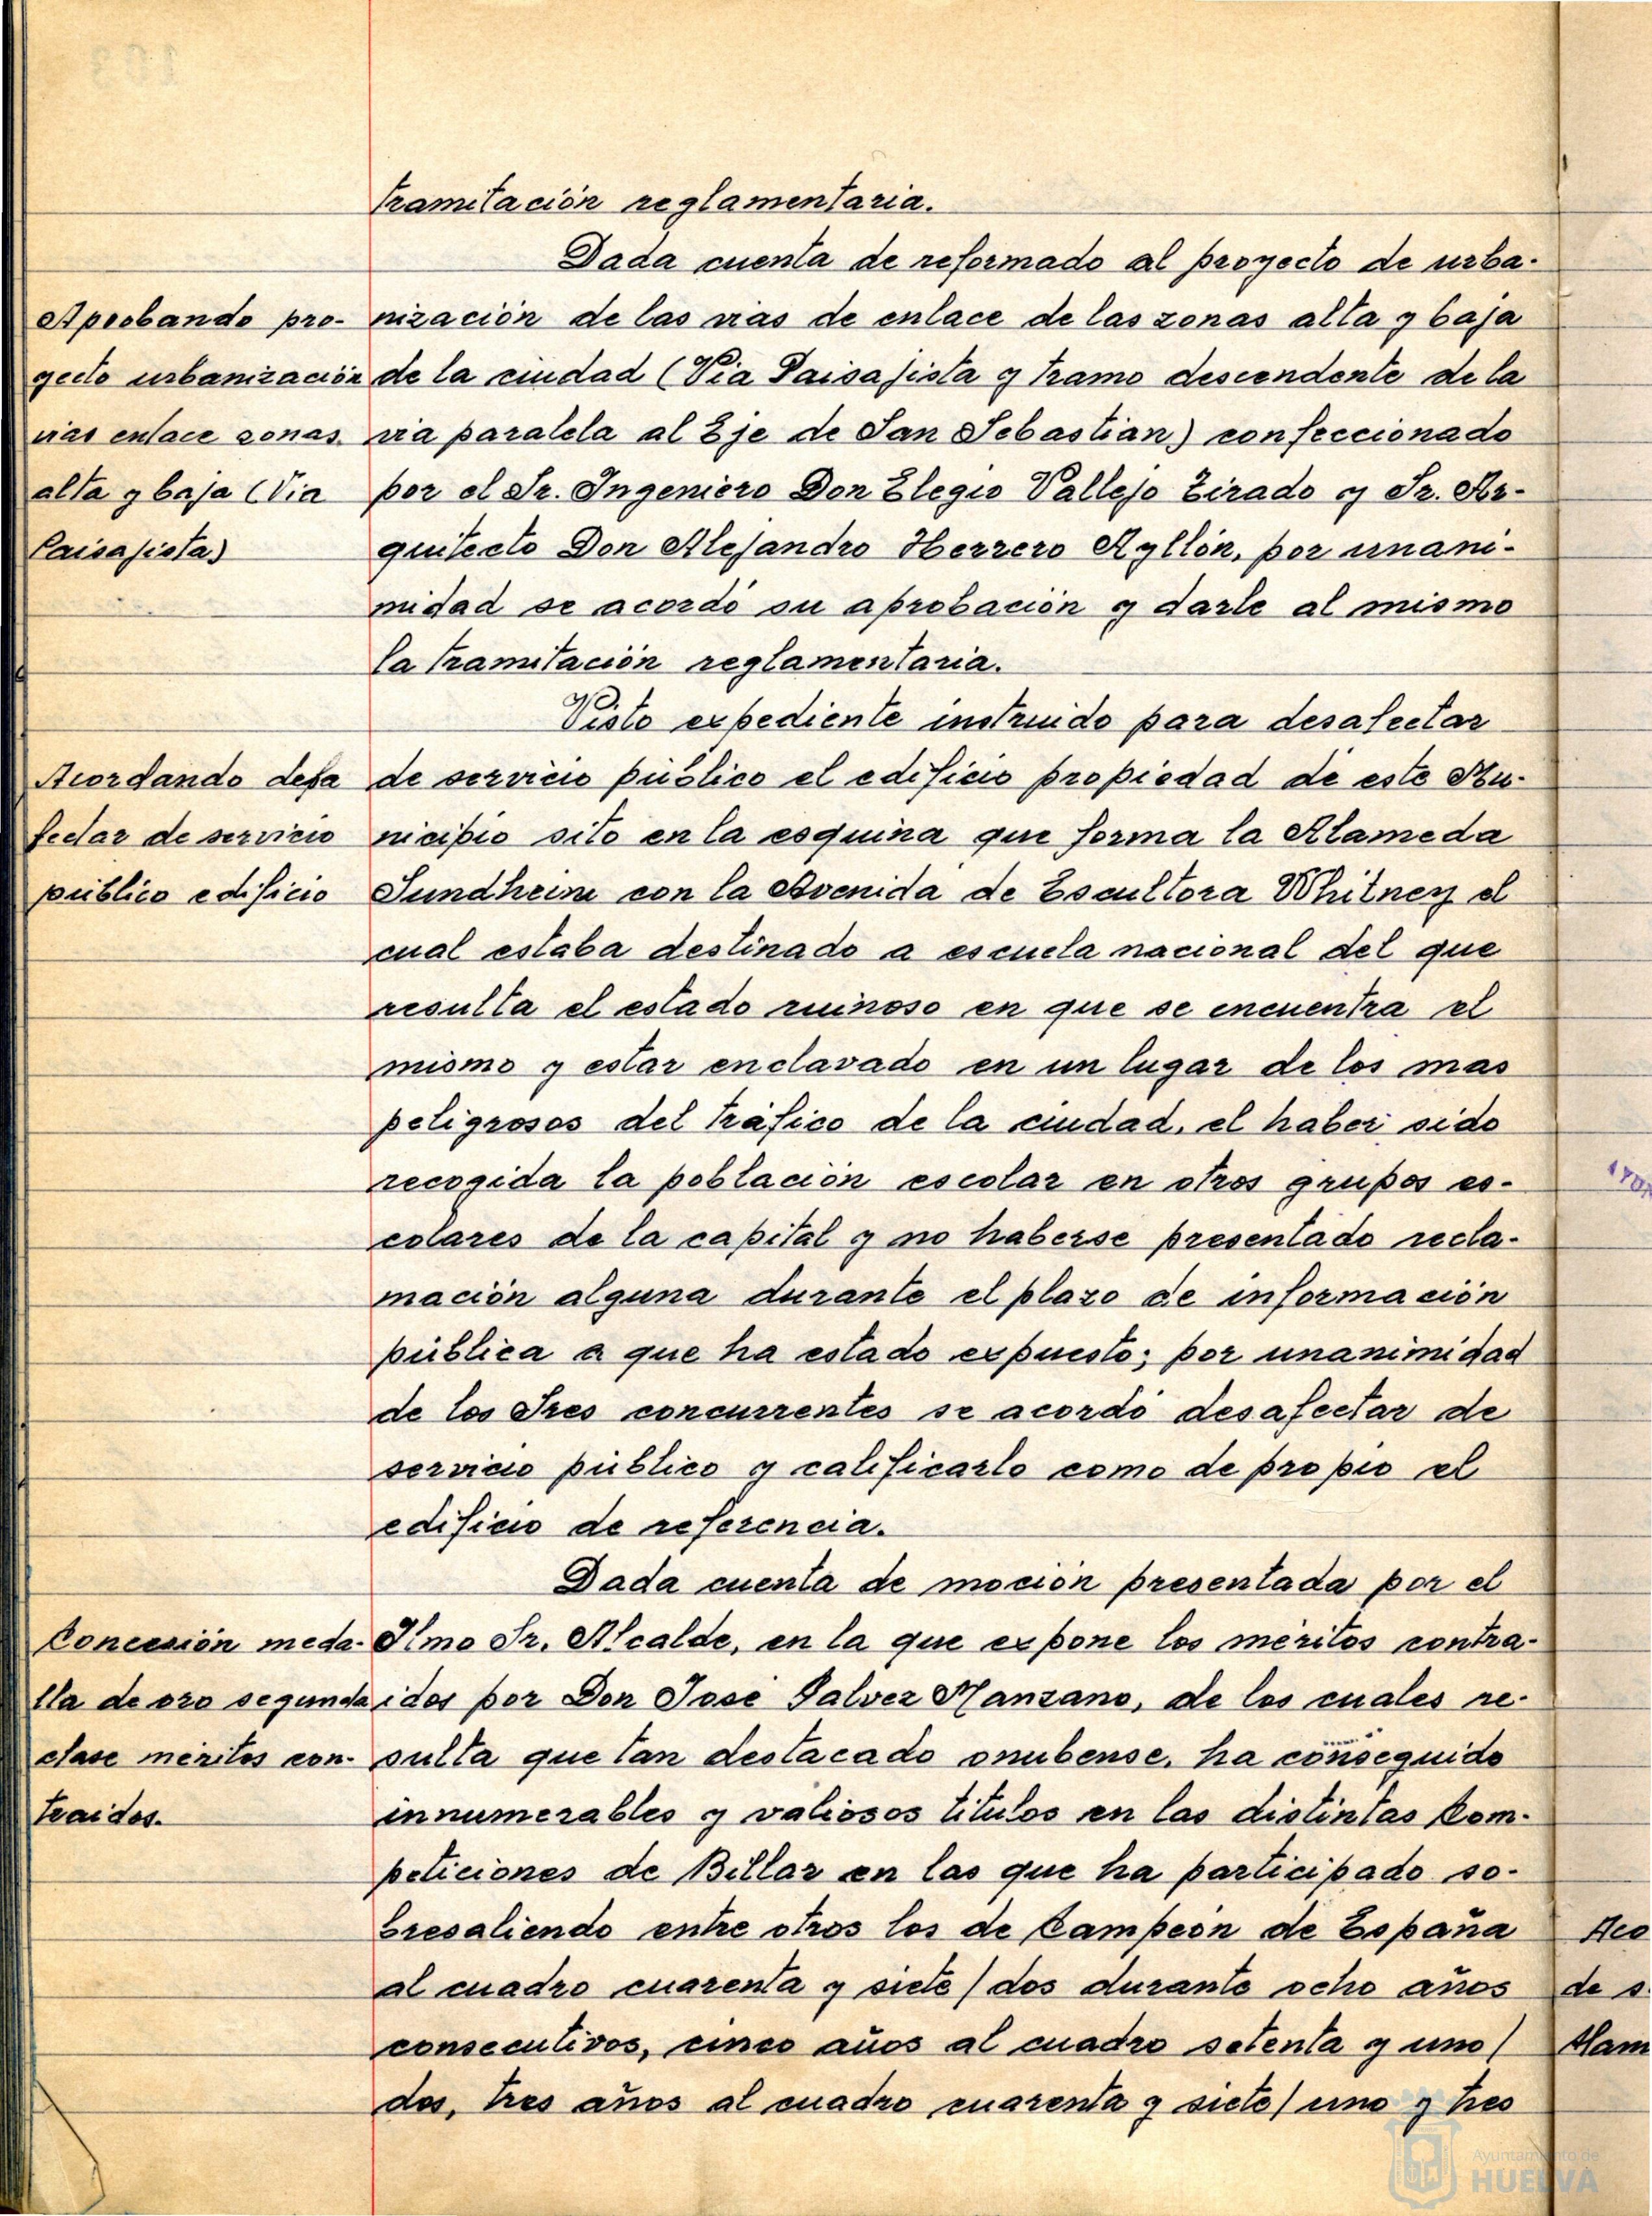 tramitación reglamentaria.
Dada cuenta de reformado al proyecto de urba-
nización de las vias de enlace de las zonas alta y baja
de la ciudad (Via Paisajista y tramo descendente de la
via paralela al Eje de San Sebastian) confeccionado
por el Sr. Ingeniero Don Elegio Vallejo Zirado y Sr. Ar-
quitecto Don Alejandro Herrero Ayllón, por unani-
midad se acordó su aprobación y darle al mismo
la tramitación reglamentaria.
Aprobando pro-
yecto urbanización
vias enlace zonas
alta y baja (Via
Paisajista)
Visto expediente instruido para desafectar
de servicio público el edificio propiedad de este Mu-
nicipio sito en la esquina que forma la Alameda
Sundheim con la Avenida de Escultora Whitney el
cual estaba destinado a escuela nacional del que
resulta el estado ruinoso en que se encuentra el
mismo y estar enclavado en un lugar de los mas
peligrosos del tráfico de la ciudad, el haber sido
recogida la población escolar en otros grupos es-
colares de la capital y no haberse presentado recla-
mación alguna durante el plazo de información
pública a que ha estado expuesto; por unanimidad
de los Sres concurrentes se acordó desafectar de
servicio público y calificarlo como de propio el
edificio de referencia.
Acordando desa
fectar de servicio
público edificio
Dada cuenta de moción presentada por el
Ilmo Sr. Alcalde, en la que expone los méritos contra-
idos por Don José Galvez Manzano, de los cuales re-
sulta que tan destacado onubense, ha conseguido
innumerables y valiosos titulos en las distintas Com-
peticiones de Billar en las que ha participado so-
bresaliendo entre otros los de Campeón de España
al cuadro cuarenta y siete/dos durante ocho años
consecutivos, cinco años al cuadro setenta y uno/
dos, tres años al cuadro cuarenta y siete/uno y tres
Concesión meda-
lla de oro segunda
clase méritos con-
traidos.
Aco
de s
Ayuntamiento de
HUELVA